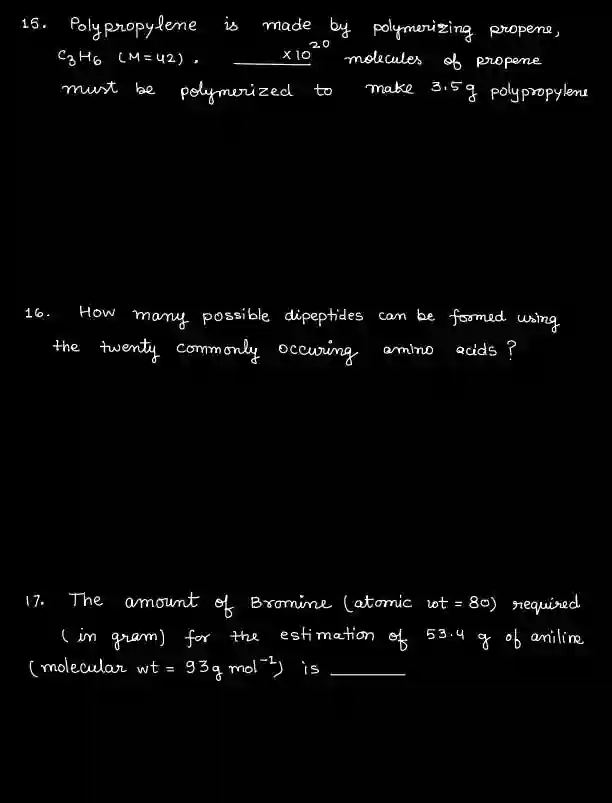 15. Polypropylene is made by polymerizing propene,
C3H6 (M=42). ______ x10^20 molecules of propene
must be polymerized to make 3.5g polypropylene
16. How many possible dipeptides can be formed using
the twenty commonly occuring amino acids ?
17. The amount of Bromine (atomic wt = 80) required
(in gram) for the estimation of 53.4 g of aniline
(molecular wt = 93g mol^-1) is ______